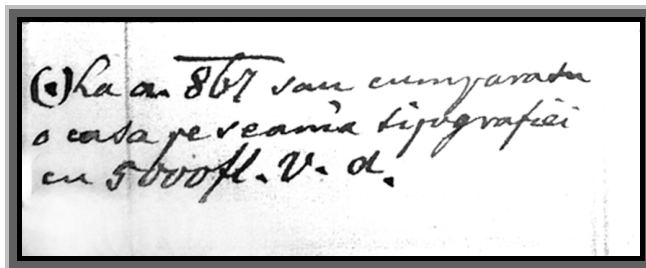 (•) La a. 867 sau cumparatu
o casa pe seam'a tipografiei
cu 5000 fl. V. a.